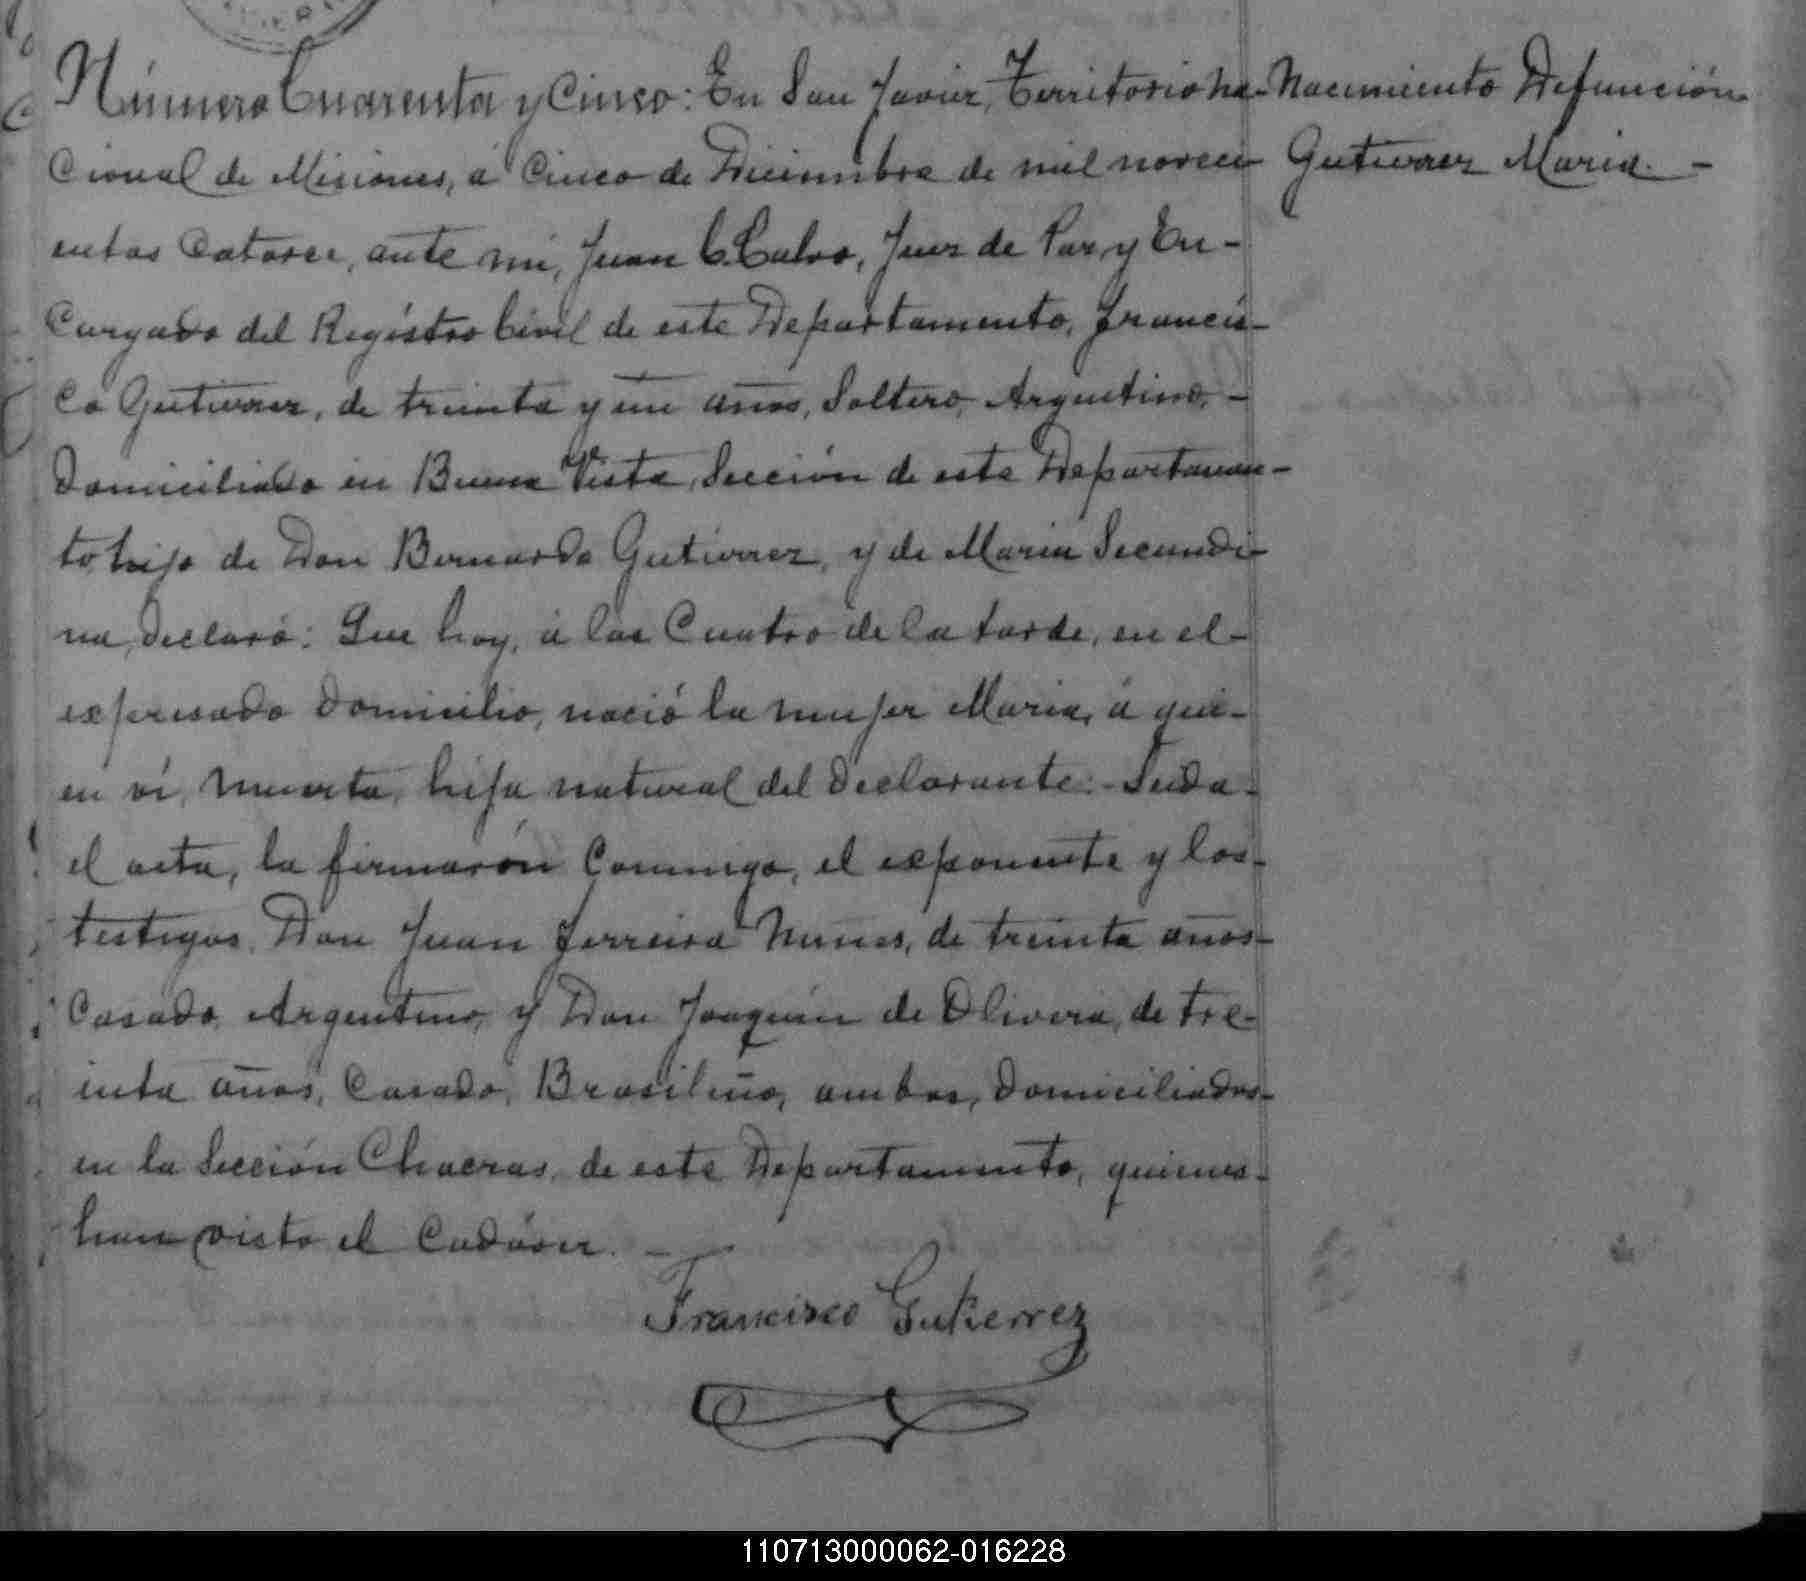 Número Cuarenta y Cinco: En San Javier, Territorio Na-
cional de Misiones, á Cinco de Diciembre de mil noveci
entos Catorce, ante mi, Juan C. Calvo, Juez de Paz y En-
cargado del Registro Civil de este Departamento, Francis-
co Gutierrez, de treinta y un años, Soltero, Argentino,-
Domiciliado en Buena Vista, Sección de este Departamen-
to, hijo de Don Bernardo Gutierrez, y de Maria Secundi-
na, Declaró: Que hoy, á las Cuatro de la tarde, en el-
expresado Domicilio, nació la mujer Maria, á qui-
en vi, muerta, hija natural del Declarante.- Leida-
el acta, la firmarón Conmigo, el exponente y los-
testigos, Don Juan Ferreira Nunes, de treinta años-
Casado, Argentino, y Don Joaquin de Olivera, de tre-
inta años, Casado, Brasileño, ambos, Domiciliados-
en la Sección Chacras, de este Departamento, quienes-
han visto el Cadáver. —
Francisco Gutierrez
Nacimiento Defunción
Gutierrez Maria. -
110713000062-016228